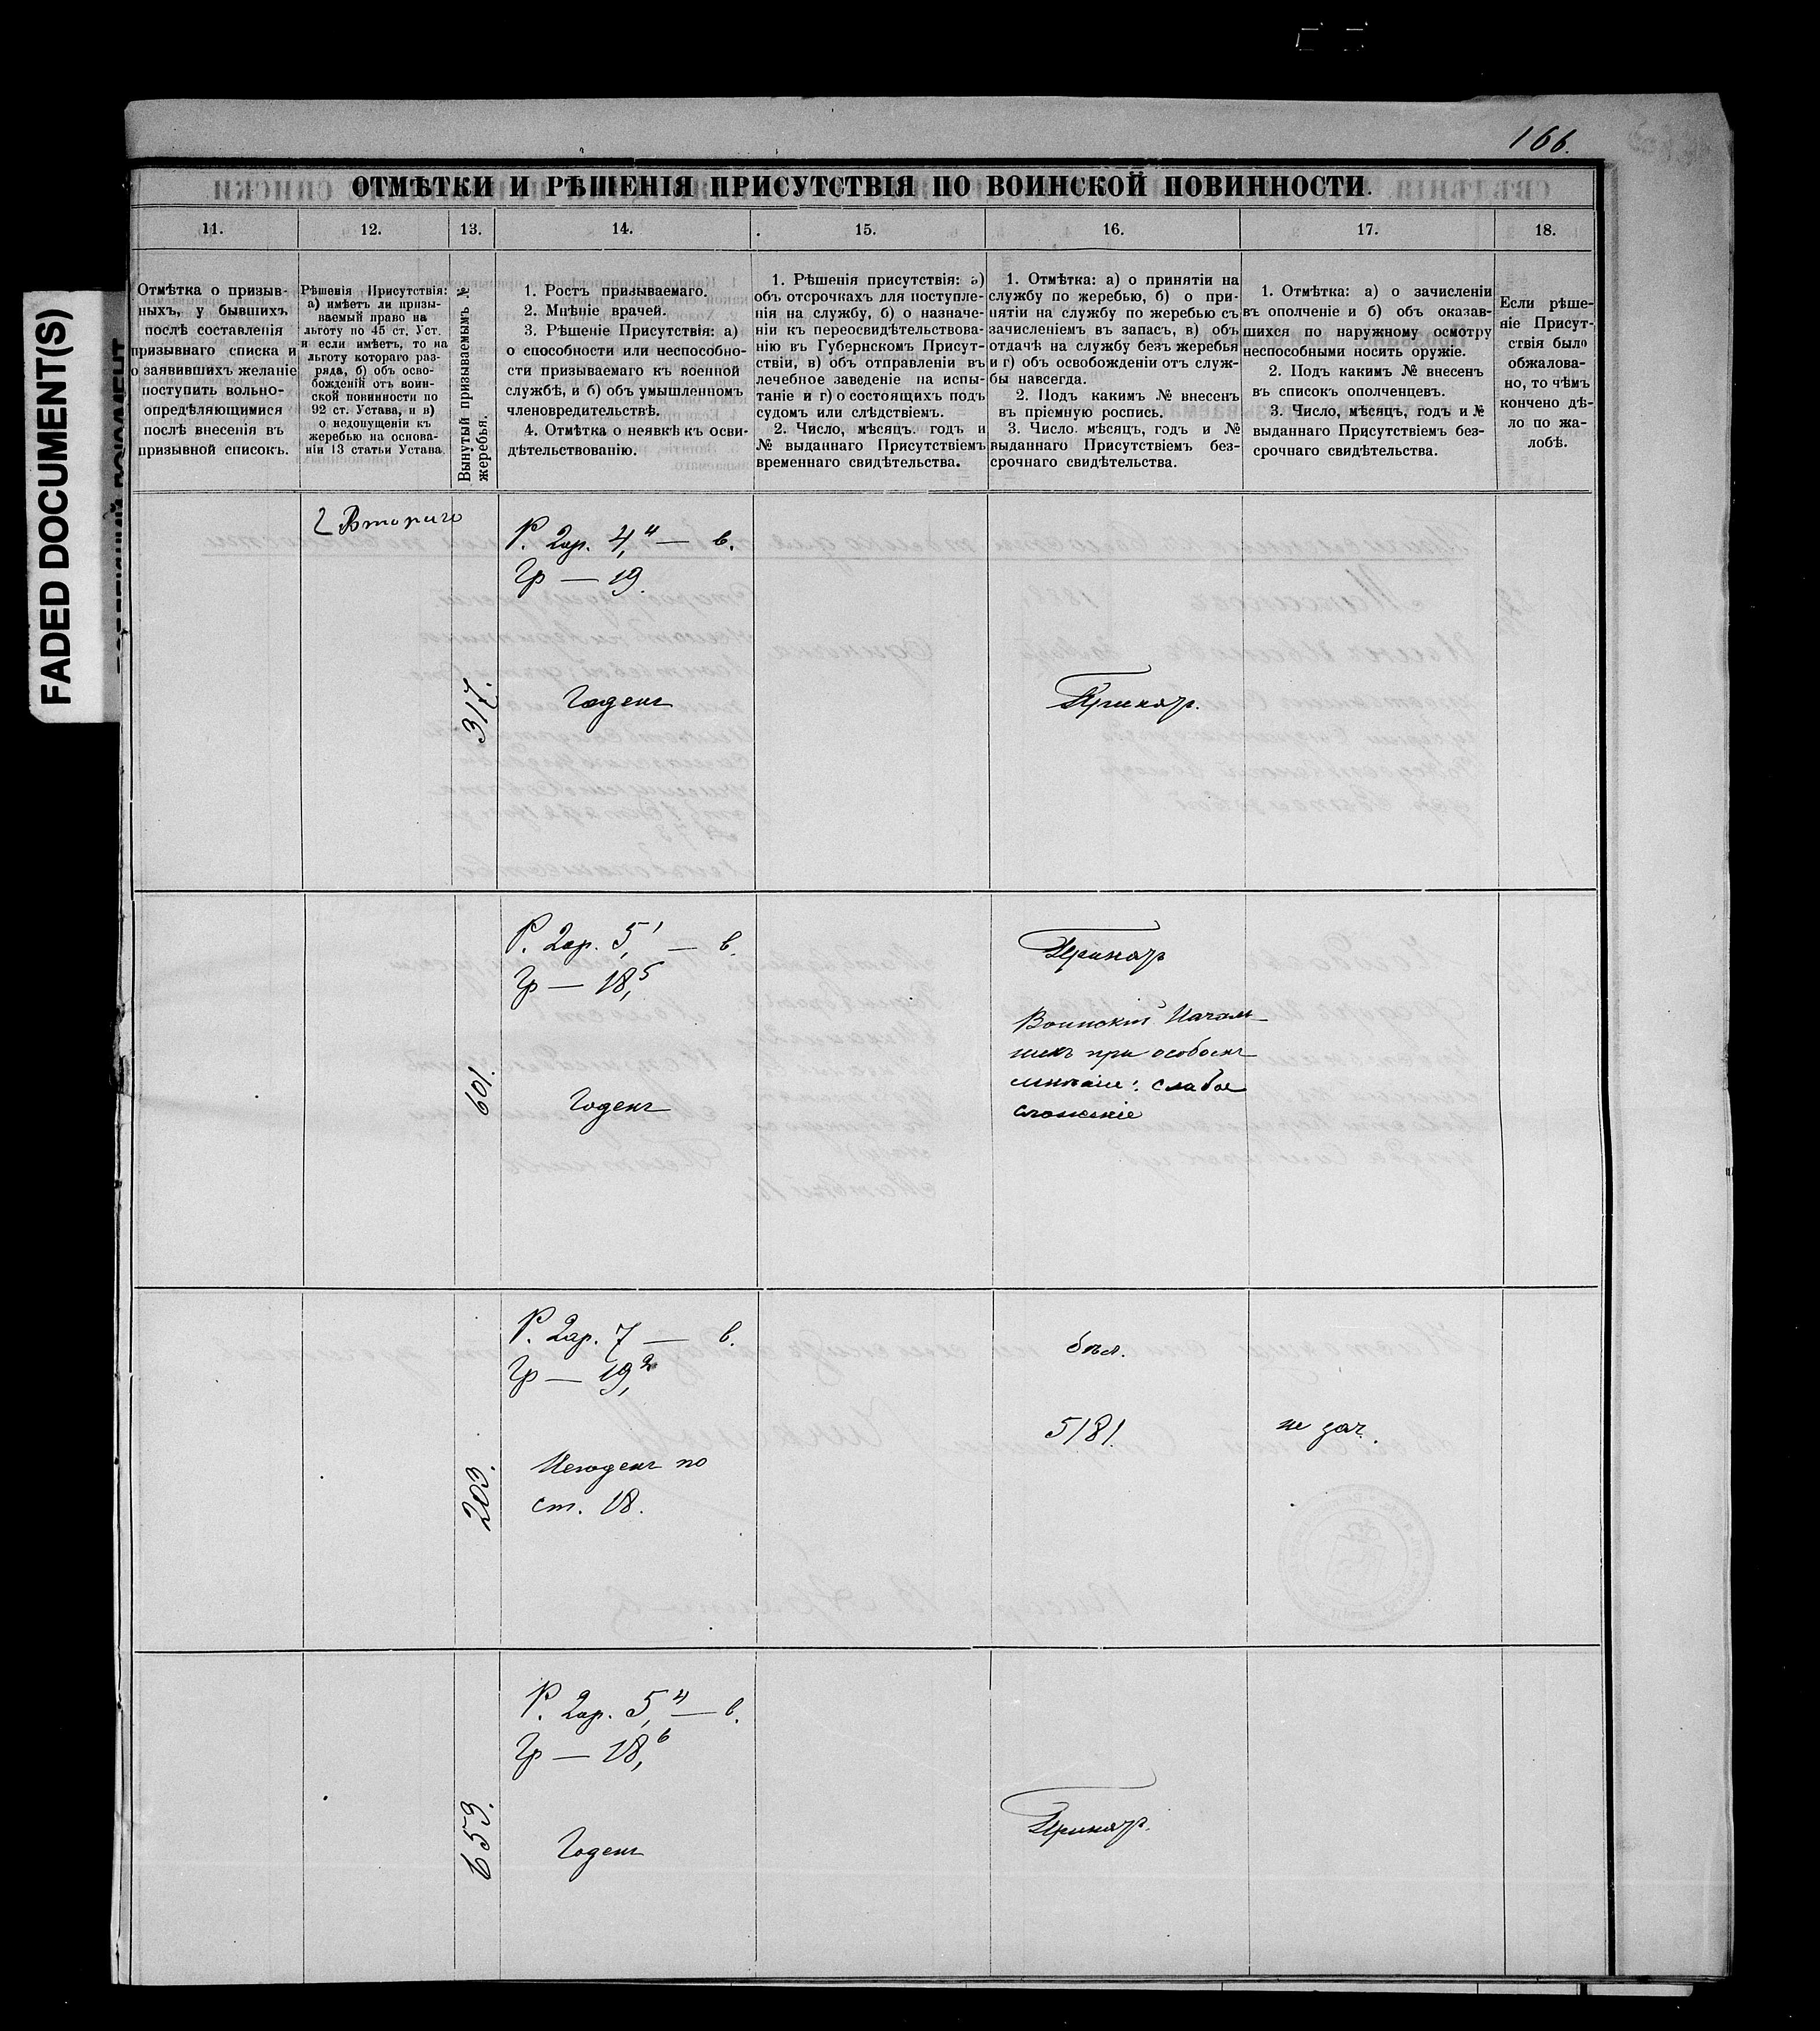 166.
FADED DOCUMENT(S)
ОТМѢТКИ И РѢШЕНІЯ ПРИСУТСТВІЯ ПО ВОИНСКОЙ ПОВИННОСТИ.
11.
12.
13.
14.
15.
16.
17.
18.
Отмѣтка о призыв-
ныхъ, у бывшихъ
послѣ составленія
призывнаго списка и
о заявившихъ желаніе
поступить вольно-
опредѣляющимися
послѣ внесенія въ
призывной списокъ.
Рѣшенія Присутствія:
а) имѣетъ ли призы-
ваемый право на
льготу по 45 ст. Уст.
и если имѣетъ, то на
льготу котораго раз-
ряда, б) объ осво-
божденіи отъ воин-
ской повинности по
92 ст. Устава, и в)
о недопущеніи къ
жеребью на основа-
ніи 13 статьи Устава
Вынутый призываемымъ №
жеребья.
1. Ростъ призываемаго.
2. Мнѣніе врачей.
3. Рѣшеніе Присутствія: а)
о способности или неспособно-
сти призываемаго къ военной
службѣ, и б) объ умышленномъ
членовредительствѣ.
4. Отмѣтка о неявкѣ къ осви-
дѣтельствованію.
1. Рѣшенія присутствія: а)
объ отсрочкахъ для поступле-
нія на службу, б) о назначе-
ніи къ переосвидѣтельствова-
нію въ Губернскомъ Присут-
ствіи, в) объ отправленіи въ
лечебное заведеніе на испы-
таніе и г) о состоящихъ подъ
судомъ или слѣдствіемъ.
2. Число, мѣсяцъ. годъ и
№ выданнаго Присутствіемъ
временнаго свидѣтельства.
1. Отмѣтка: а) о принятіи на
службу по жеребью, б) о при-
нятіи на службу по жеребью съ
зачисленіемъ въ запасъ, в) объ
отдачѣ на службу безъ жеребья
и г) объ освобожденіи отъ служ-
бы навсегда.
2. Подъ какимъ № внесенъ
въ пріемную роспись.
3. Число. мѣсяцъ, годъ и №
выданнаго Присутствіемъ без-
срочнаго свидѣтельства.
1. Отмѣтка: а) о зачисленіи
въ ополченіе и б) объ оказав-
шихся по наружному осмотру
неспособными носить оружіе.
2. Подъ какимъ № внесенъ
въ списокъ ополченцевъ.
3. Число, мѣсяцъ, годъ и №
выданнаго Присутствіемъ без-
срочнаго свидѣтельства.
Если рѣше-
ніе Присут-
ствія было
обжалова-
но, то чѣмъ
кончено дѣ-
ло по жа-
лобѣ.
2 Второго
317.
Р. 2ар. 4,4 — в.
Гр — 19.
Годенъ
Принятъ.
601.
Р. 2ар. 5,1 — в.
Гр — 18,5
Годенъ
Принятъ
Воинскій Началь-
никъ при особомъ
мнѣніи: слабое
сложеніе
203.
Р. 2ар. 7 — в.
Гр — 19,2
Негоденъ по
ст. 18.
бѣл.
5181.
не зач.
653.
Р. 2ар. 5,4 — в.
Гр — 18,6
Годенъ
Принятъ.